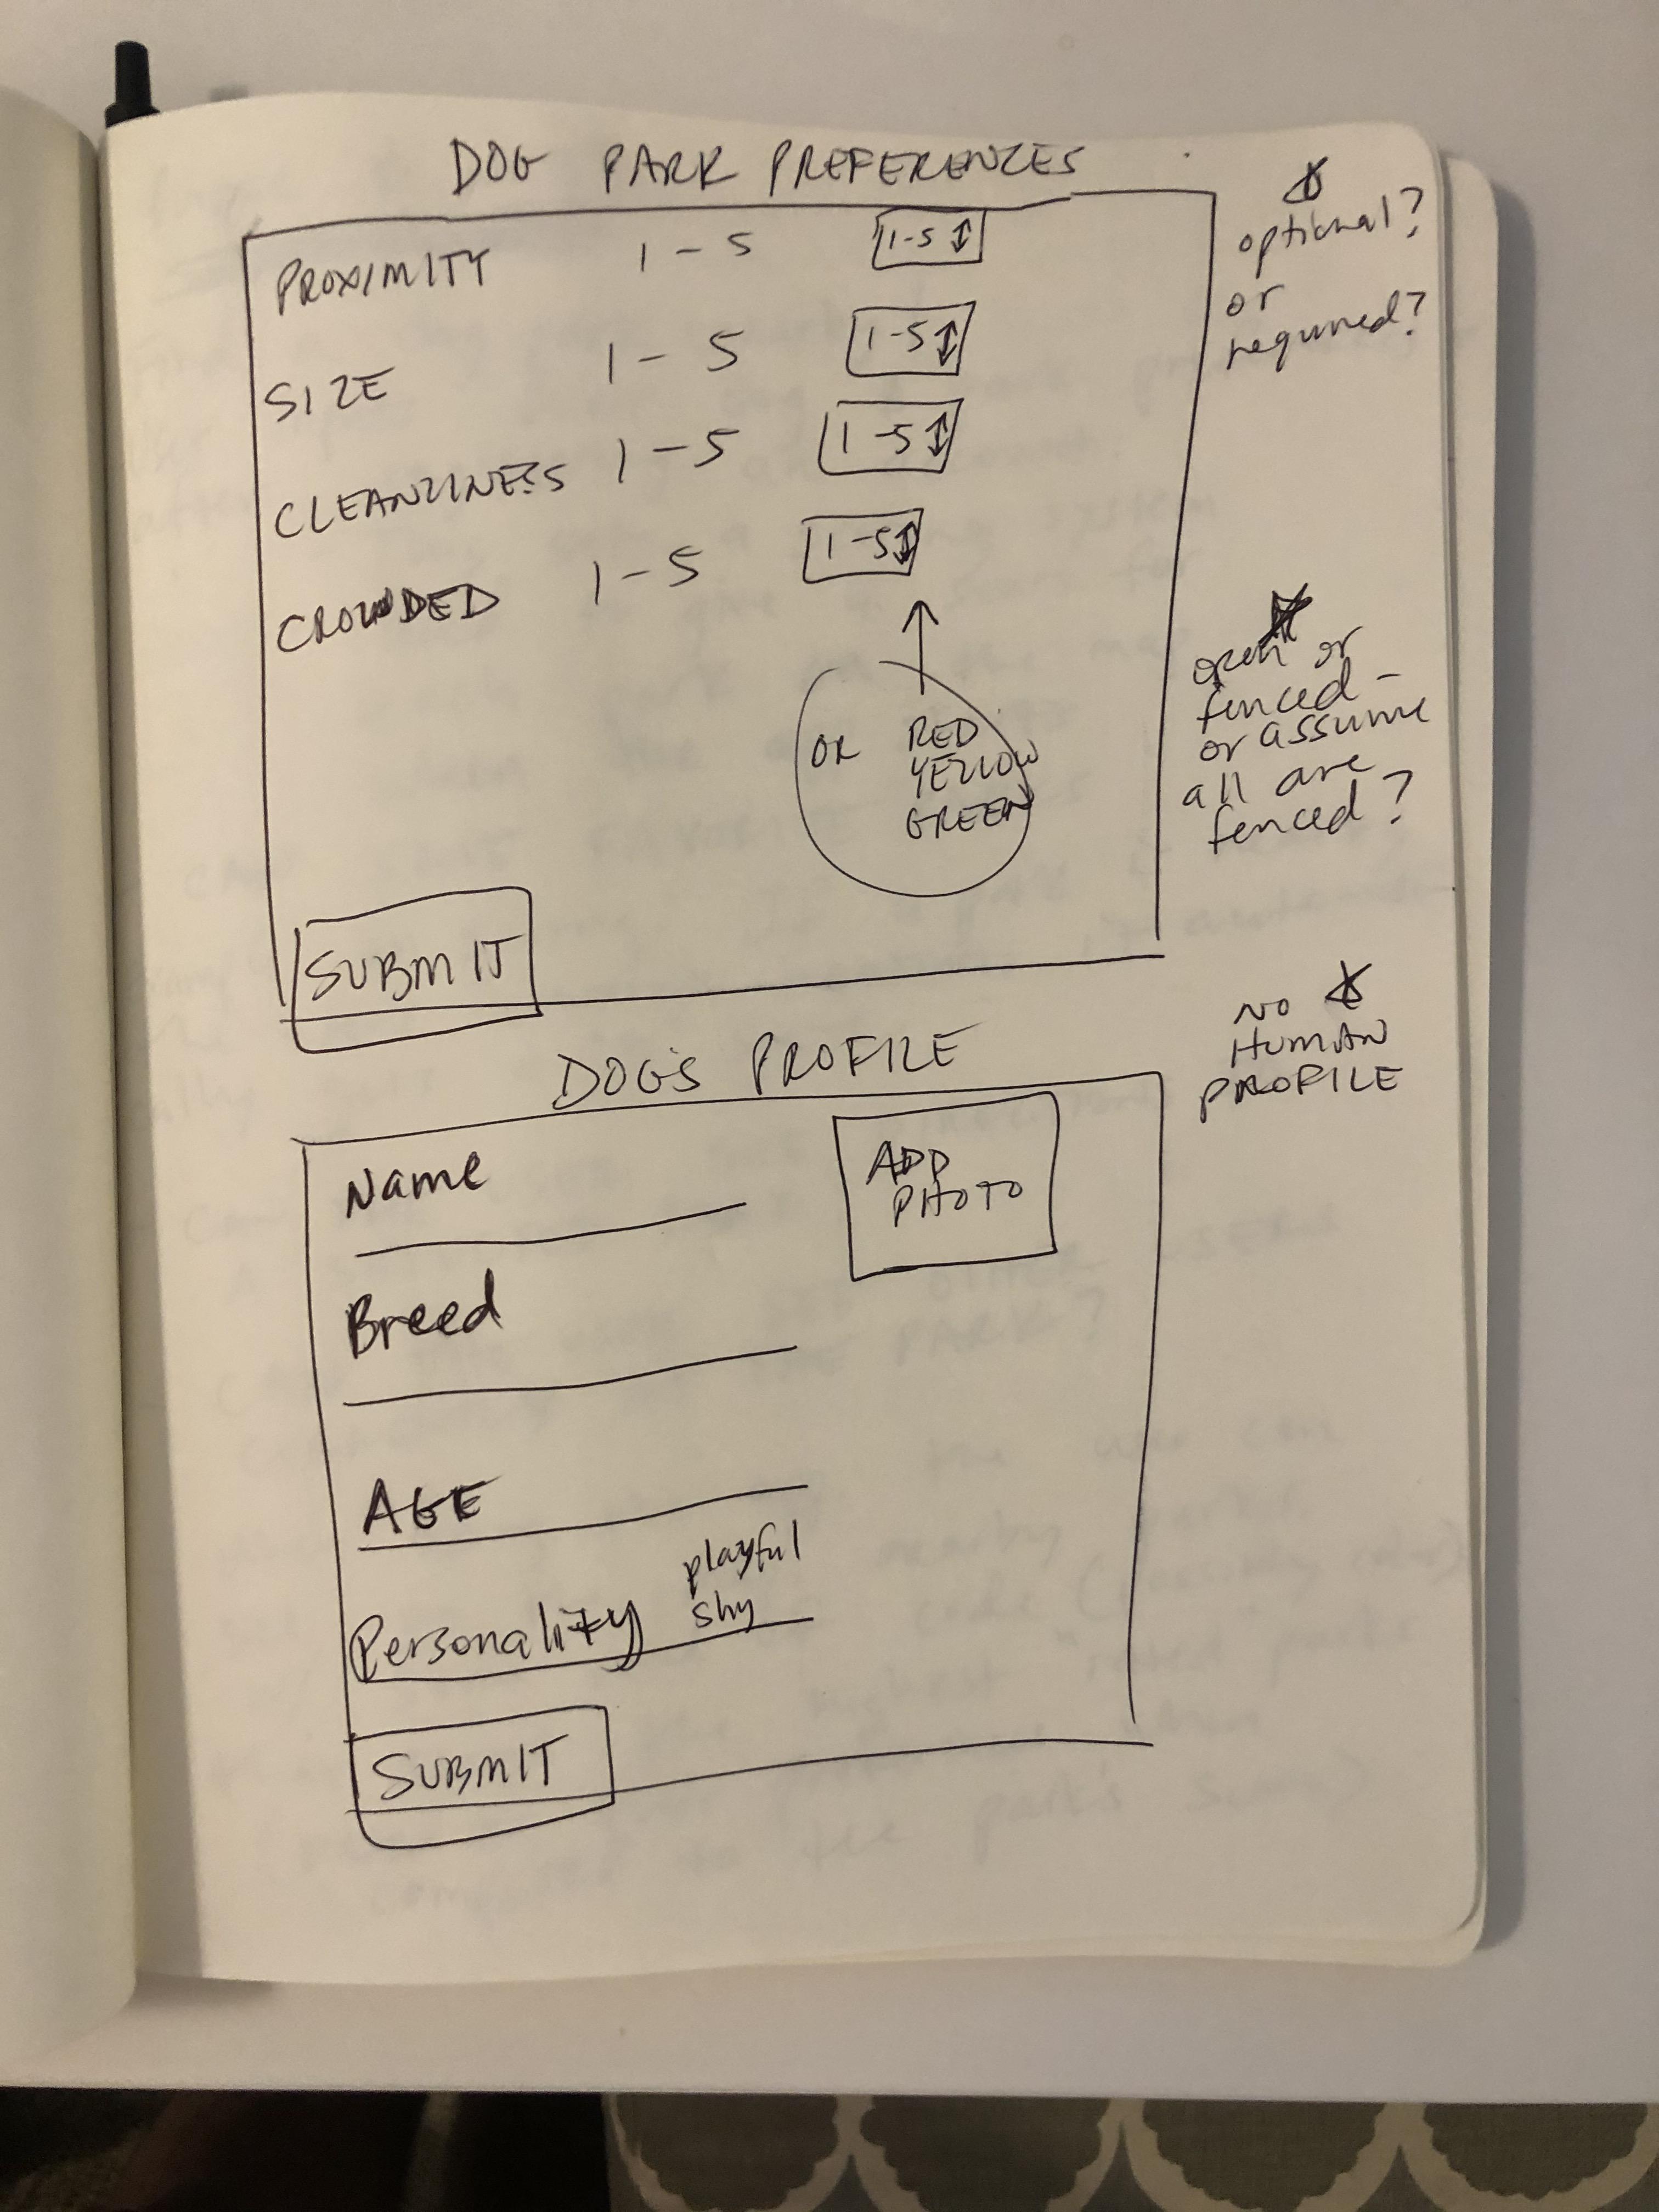 DOG PARK PREFERENCES
PROXIMITY 1-5 1-5 ↕
SIZE 1-5 1-5 ↕
CLEANLINESS 1-5 1-5 ↕
CROWDED 1-5 1-5 ↕
OR RED
YELLOW
GREEN
SUBMIT
optional?
or
required?
open or
fenced -
or assume
all are
fenced?
DOG'S PROFILE
NO
HUMAN
PROFILE
Name
ADD
PHOTO
Breed
AGE
Personality playful
shy
SUBMIT